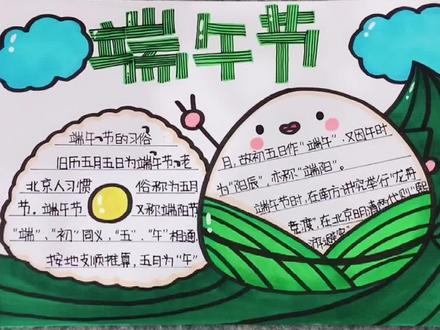 端午节
端午节的习俗
旧历五月五日为端午节,老
北京人习惯 俗称为五月
节。端午节 又称端阳节
"端"、"初"同义,"五"、"午"相通
按地支顺推算,五月为"午"
月,故初五日作"端午",又因午时
为"阳辰",亦称"端阳"。
端午节时,在南方讲究举行"龙舟
竞渡",在北京明清两代则